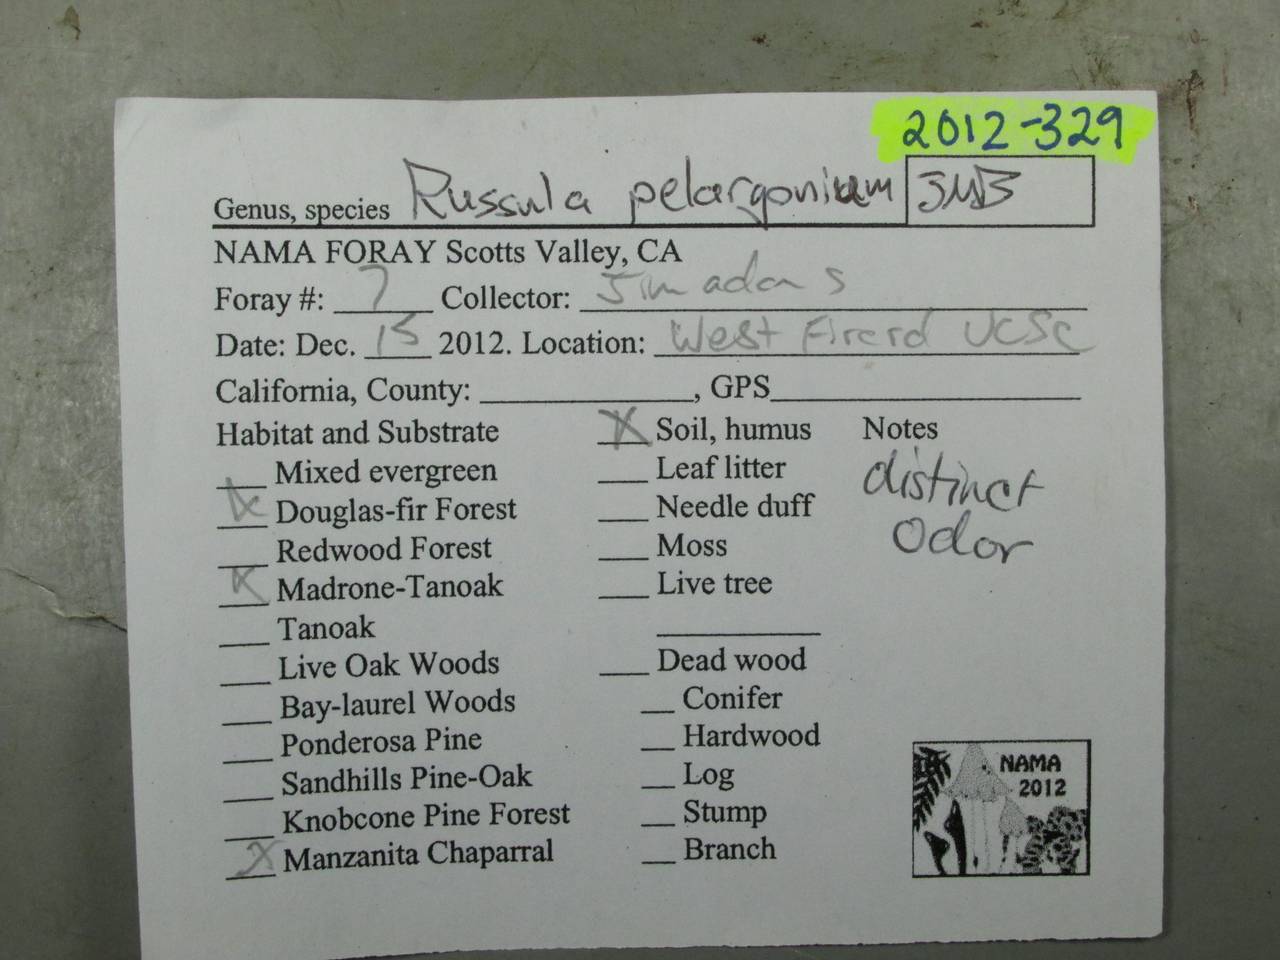 2012-329
Genus, species Russula pelargonium JMB
NAMA FORAY Scotts Valley, CA
Foray #: 7 Collector: Jim adams
Date: Dec. 15 2012. Location: West Firerd UCSC
California, County: ____________, GPS____________
Habitat and Substrate
___ Mixed evergreen
X Douglas-fir Forest
___ Redwood Forest
X Madrone-Tanoak
___ Tanoak
___ Live Oak Woods
___ Bay-laurel Woods
___ Ponderosa Pine
___ Sandhills Pine-Oak
___ Knobcone Pine Forest
X Manzanita Chaparral
X Soil, humus
___ Leaf litter
___ Needle duff
___ Moss
___ Live tree
____________
___ Dead wood
__ Conifer
__ Hardwood
__ Log
__ Stump
__ Branch
Notes
distinct
odor
NAMA
2012